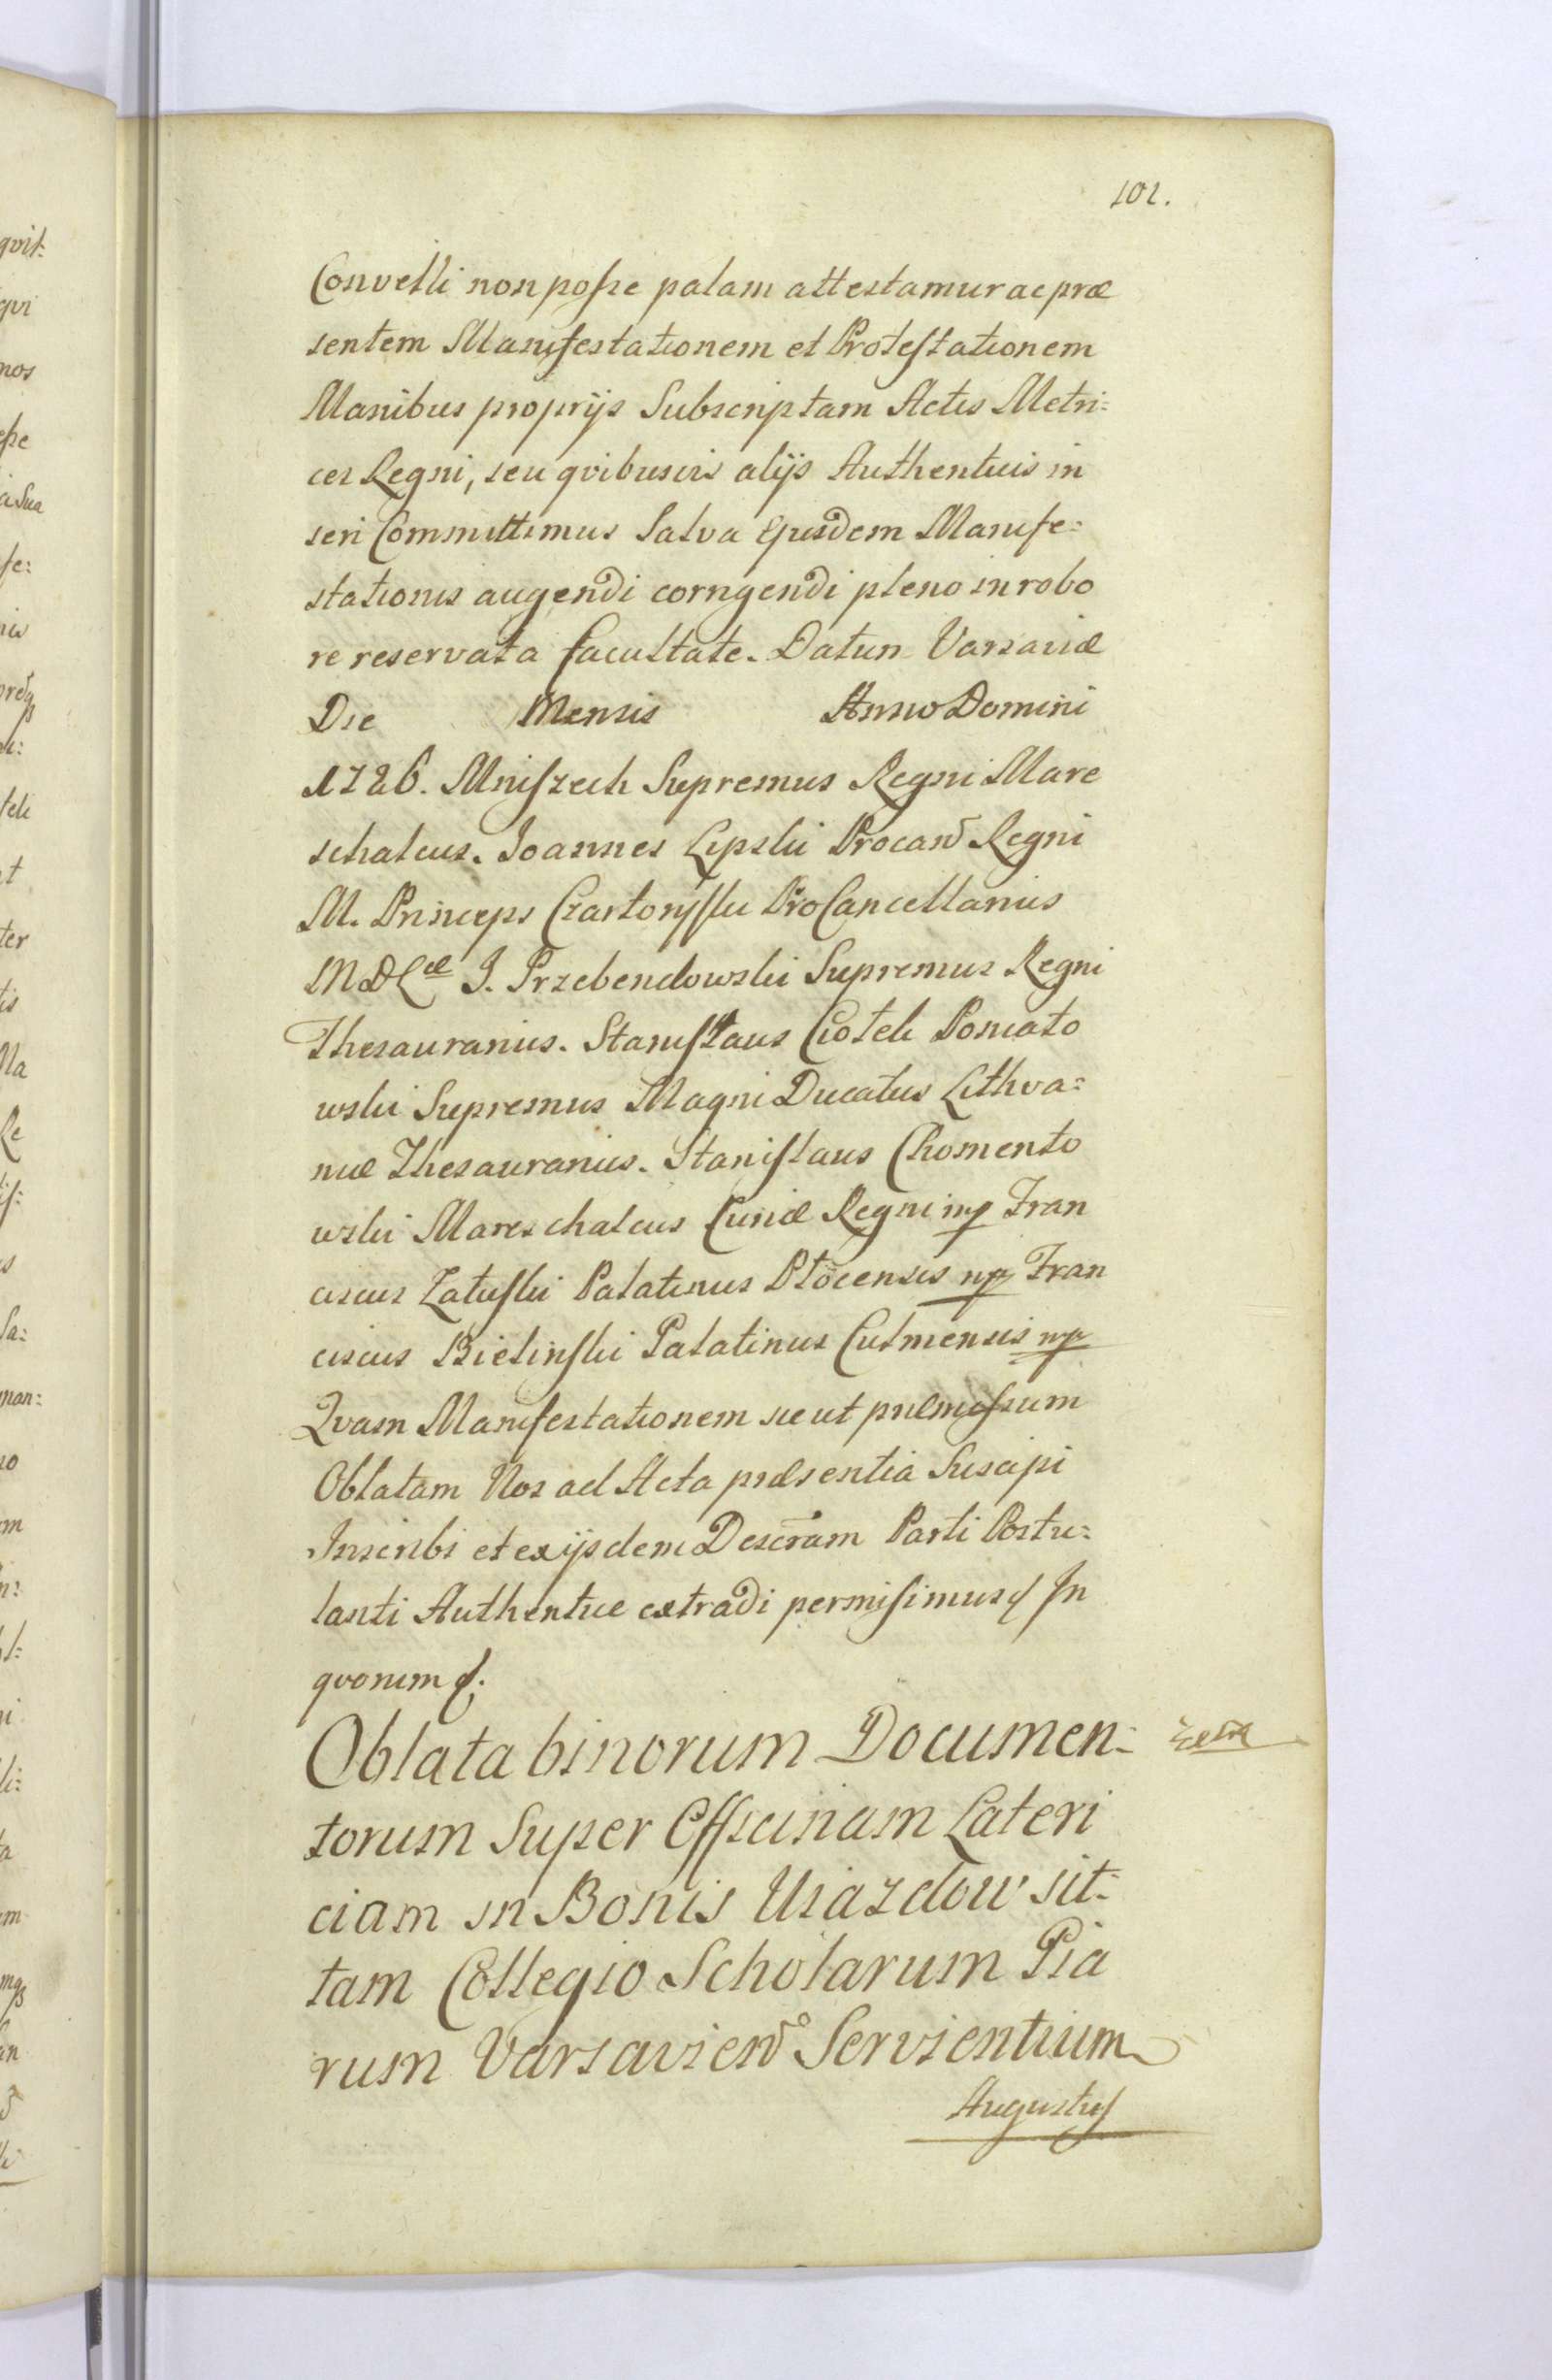 101.
Convelli non poſse palam attestamur ac præ
sentem Manifestationem et Proteſtationem
Manibus proprijs Subscriptam Actis Metri=
ces Regni, seu qvibusvis alijs Authenticis in
seri Committimus Salva Ejusdem Manife=
stationis augendi corrigendi pleno in robo
re reservata facultate. Datum Varsaviæ
Die Mensis Anno Domini
1726. Mniſzech Supremus Regni Mare
schalcus. Joannes Lipski Procanc Regni
M. Princeps Czartoryſki ProCancellarius
MDL æ J. Przebendowski Supremus Regni
Thesaurarius. Staniſlaus Ciołek Poniato
wski Supremus Magni Ducatus Lithva=
niæ Thesaurarius. Staniſlaus Chomento
wski Mareschalcus Curiæ Regni mp Fran
ciscus Załuſki Palatinus Płocensis mp Fran
ciscus Bielinſki Palatinus Culmensis mp
Qvam Manifestationem sicut præmiſsum
Oblatam Nos ad Acta præsentia Suscipi
Inscribi et ex ijsdem Descram Parti Postu=
lanti Authentice extradi permiſimus In
qvorum
Oblata binorum Documen=
torum Super Officinam Lateri
ciam in Bonis Uiazdow sit=
tam Collegio Scholarum Pia
rum Varsavien Servientium
Augustus